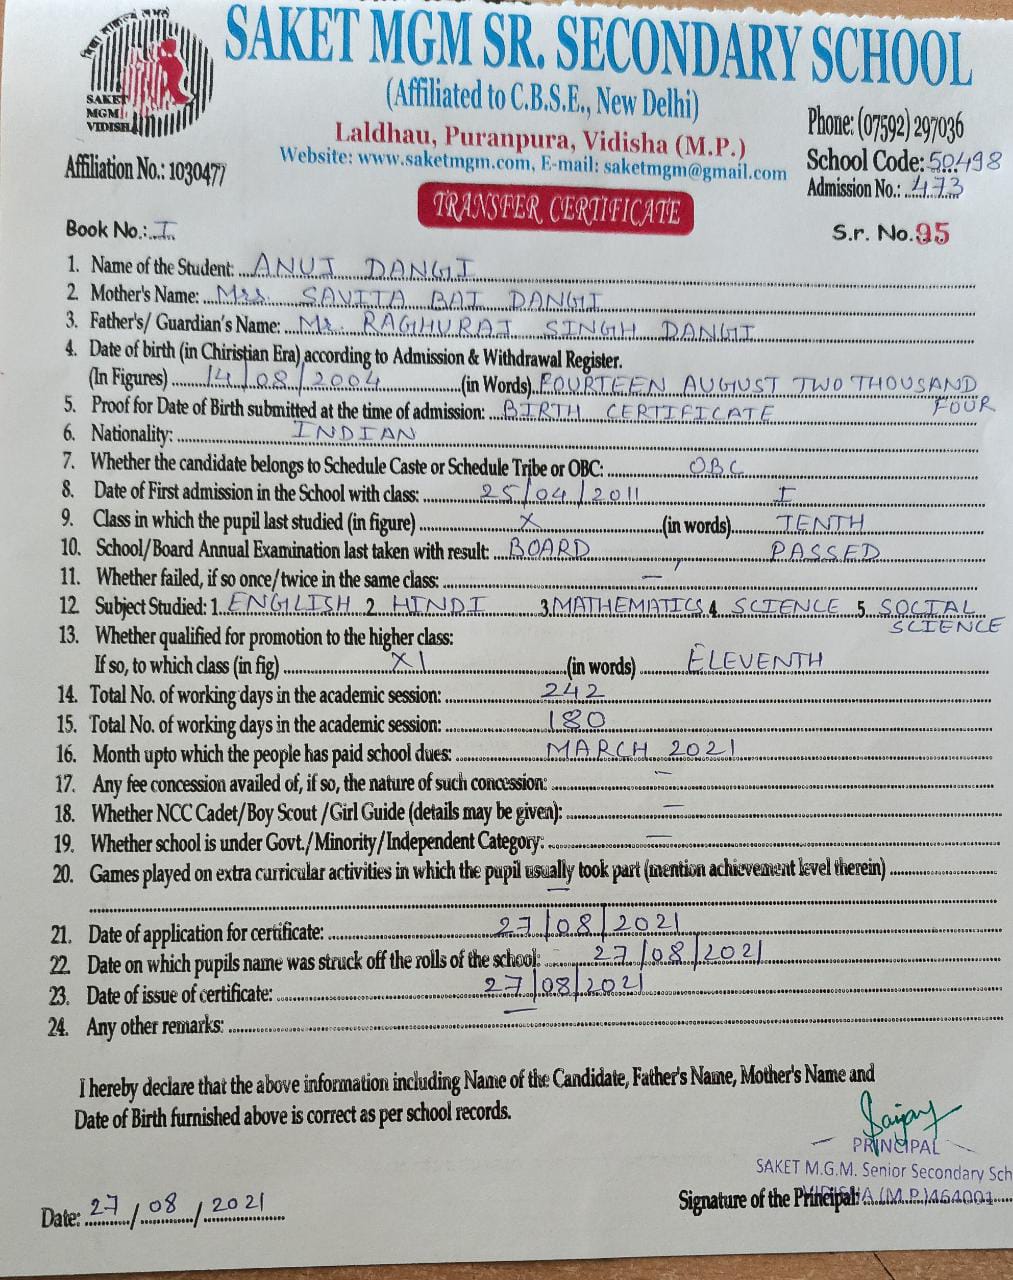 SAKET MGM SR. SECONDARY SCHOOL
(Affiliated to C.B.S.E., New Delhi)
SAKET
MGM
VIDISHA
Laldhau, Puranpura, Vidisha (M.P.)
Phone: (07592) 297036
Website: www.saketmgm.com, E-mail: saketmgm@gmail.com
School Code: 50498
Affiliation No.: 1030477
Admission No.: 473
TRANSFER CERTIFICATE
Book No.: I
S.r. No. 95
1. Name of the Student: ANUJ DANGI
2. Mother's Name: Mrs. SAVITA BAI DANGI
3. Father's/ Guardian's Name: Mr. RAGHURAJ SINGH DANGI
4. Date of birth (in Chiristian Era) according to Admission & Withdrawal Register.
(In Figures) 14/08/2004 (in Words) FOURTEEN AUGUST TWO THOUSAND
FOUR
5. Proof for Date of Birth submitted at the time of admission: BIRTH CERTIFICATE
6. Nationality: INDIAN
7. Whether the candidate belongs to Schedule Caste or Schedule Tribe or OBC: OBC
8. Date of First admission in the School with class: 25/04/2011 I
9. Class in which the pupil last studied (in figure) X (in words) TENTH
10. School/Board Annual Examination last taken with result: BOARD , PASSED
11. Whether failed, if so once/twice in the same class: —
12. Subject Studied: 1. ENGLISH 2. HINDI 3. MATHEMATICS 4. SCIENCE 5. SOCIAL
SCIENCE
13. Whether qualified for promotion to the higher class:
If so, to which class (in fig) XI (in words) ELEVENTH
14. Total No. of working days in the academic session: 242
15. Total No. of working days in the academic session: 180
16. Month upto which the people has paid school dues: MARCH 2021
17. Any fee concession availed of, if so, the nature of such concession: —
18. Whether NCC Cadet/Boy Scout /Girl Guide (details may be given): —
19. Whether school is under Govt./Minority/Independent Category: —
20. Games played on extra curricular activities in which the pupil usually took part (mention achievement level therein)
—
21. Date of application for certificate: 27/08/2021
22. Date on which pupils name was struck off the rolls of the school: 27/08/2021
23. Date of issue of certificate: 27/08/2021
24. Any other remarks: —
I hereby declare that the above information including Name of the Candidate, Father's Name, Mother's Name and
Date of Birth furnished above is correct as per school records.
PRINCIPAL
SAKET M.G.M. Senior Secondary Sch
Signature of the Principal: (M.P.) 464001
Date: 27/08/2021